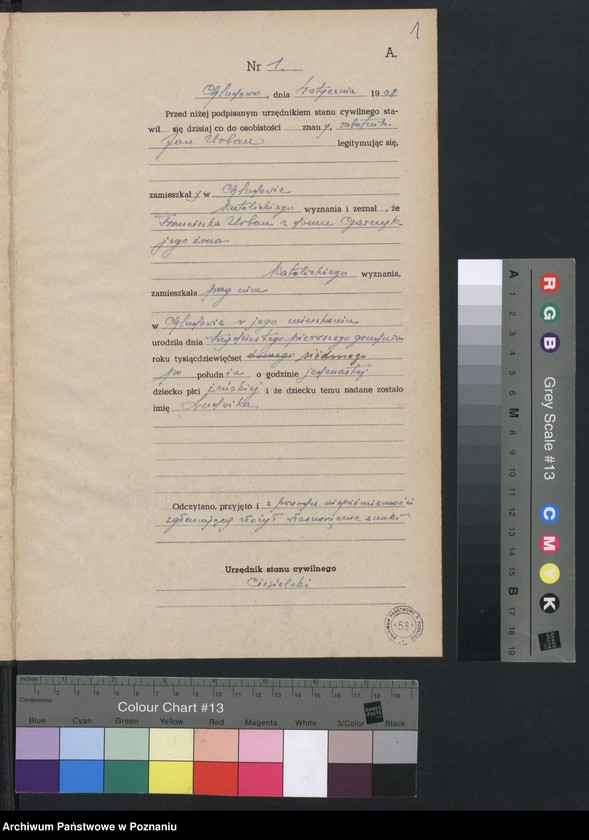 1
A.
Nr 1.
Chludowo, dnia 4 stycznia 1908
Przed niżej podpisanym urzędnikiem stanu cywilnego sta-
wił się dzisiaj co do osobistości znany, robotnik
Jan Urban legitymując się,
zamieszkały w Chludowie
katolickiego wyznania i zeznał, że
Franciszka Urban z domu
jego żona
katolickiego wyznania,
zamieszkała przy nim
w Chludowie w jego mieszkaniu
urodziła dnia trzydziestego pierwszego grudnia
roku tysiącdziewięćset ósmego siódmego
po południu o godzinie jedenastej
dziecko płci żeńskiej i że dziecku temu nadane zostało
imię Ludwika
Odczytano, przyjęto i z powodu niepiśmienności
zgłaszający złożył własnoręczne znaki
Urzędnik stanu cywilnego
Ciesielski
53
A 1 2 3 4 5 6 M 8 9 10 11 12 13 14 15 B 17 18 19
R G B Grey Scale #13 C M Y K
Inches 1 2 3 4 5 6 7 8
Centimetres 1 2 3 4 5 6 7 8 9 10 11 12 13 14 15 16 17 18 19
Colour Chart #13
Blue Cyan Green Yellow Red Magenta White 3/Color Black
Archiwum Państwowe w Poznaniu